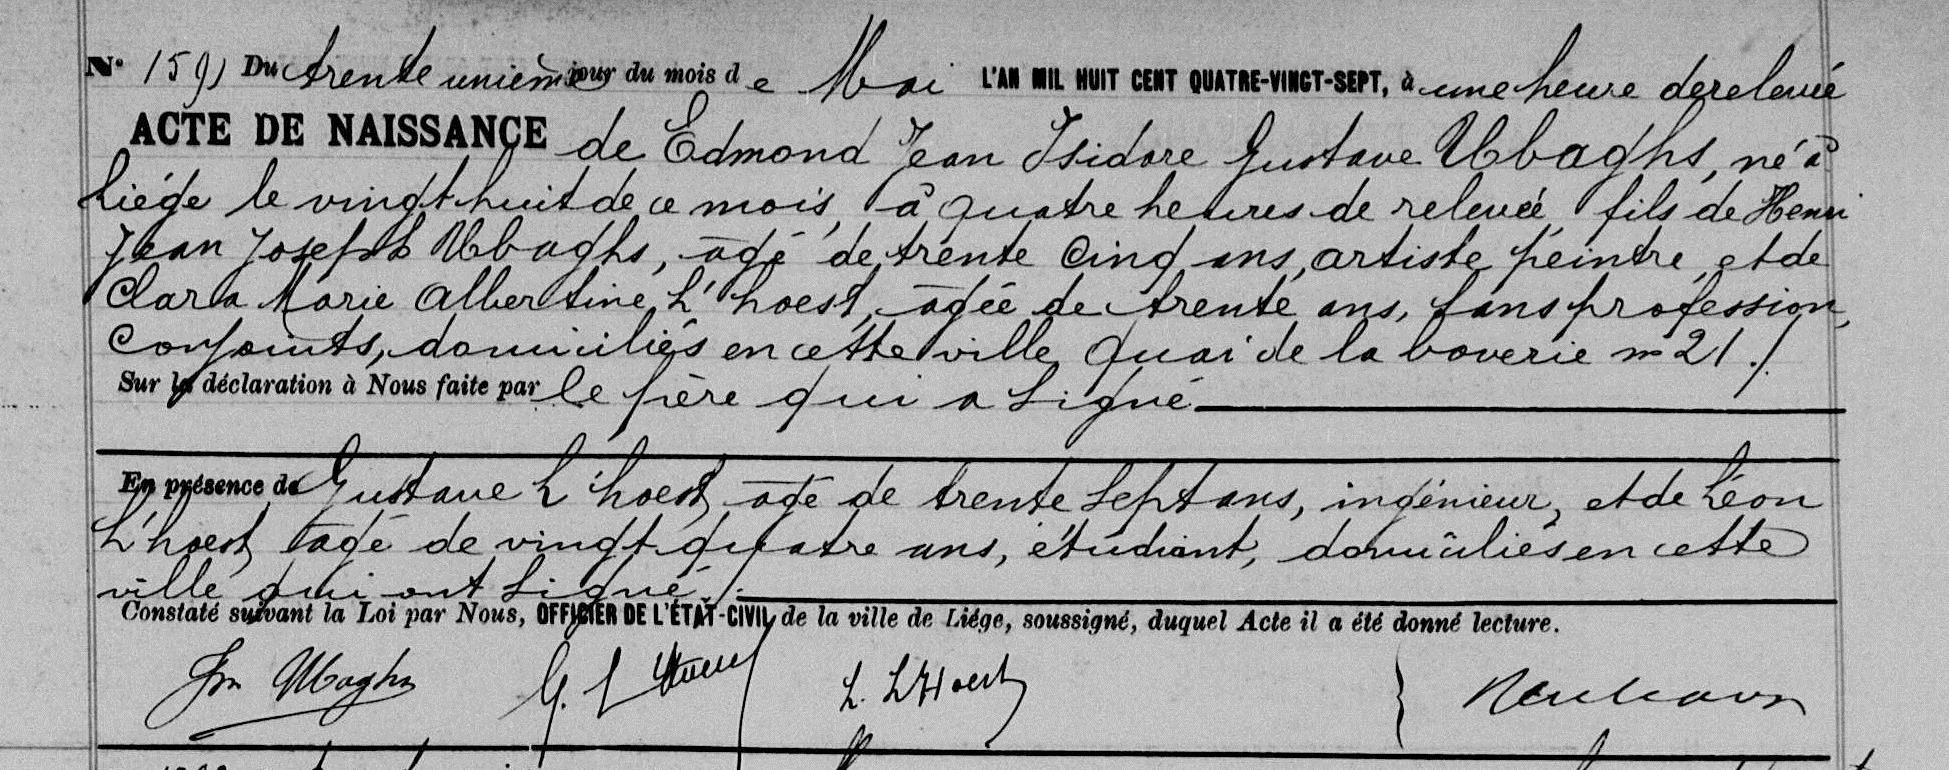 N° 1591 Du trente unième jour du mois de Mai L'AN MIL HUIT CENT QUATRE-VINGT-SEPT, à une heure de relevée
ACTE DE NAISSANCE de Edmond Jean Isidore Gustave Ubaghs, né à
Liége le vingt huit de ce mois, à quatre heures de relevée fils de Henri
Jean Joseph Ubaghs, âgé de trente cinq ans, artiste peintre, et de
Clara Marie Albertine L'hoest, âgée de trente ans, sans profession,
conjoints, domiciliés en cette ville, quai de la boverie n° 21 ./.
Sur la déclaration à Nous faite par le père qui a signé
En présence de Gustave L'hoest, âgé de trente sept ans, ingénieur, et de Léon
L'hoest, âgé de vingt quatre ans, étudiant, domiciliés en cette
ville qui ont signé ./.
Constaté suivant la Loi par Nous, OFFICIER DE L'ÉTAT-CIVIL de la ville de Liége, soussigné, duquel Acte il a été donné lecture.
Ubaghs G. L. L'Hoest